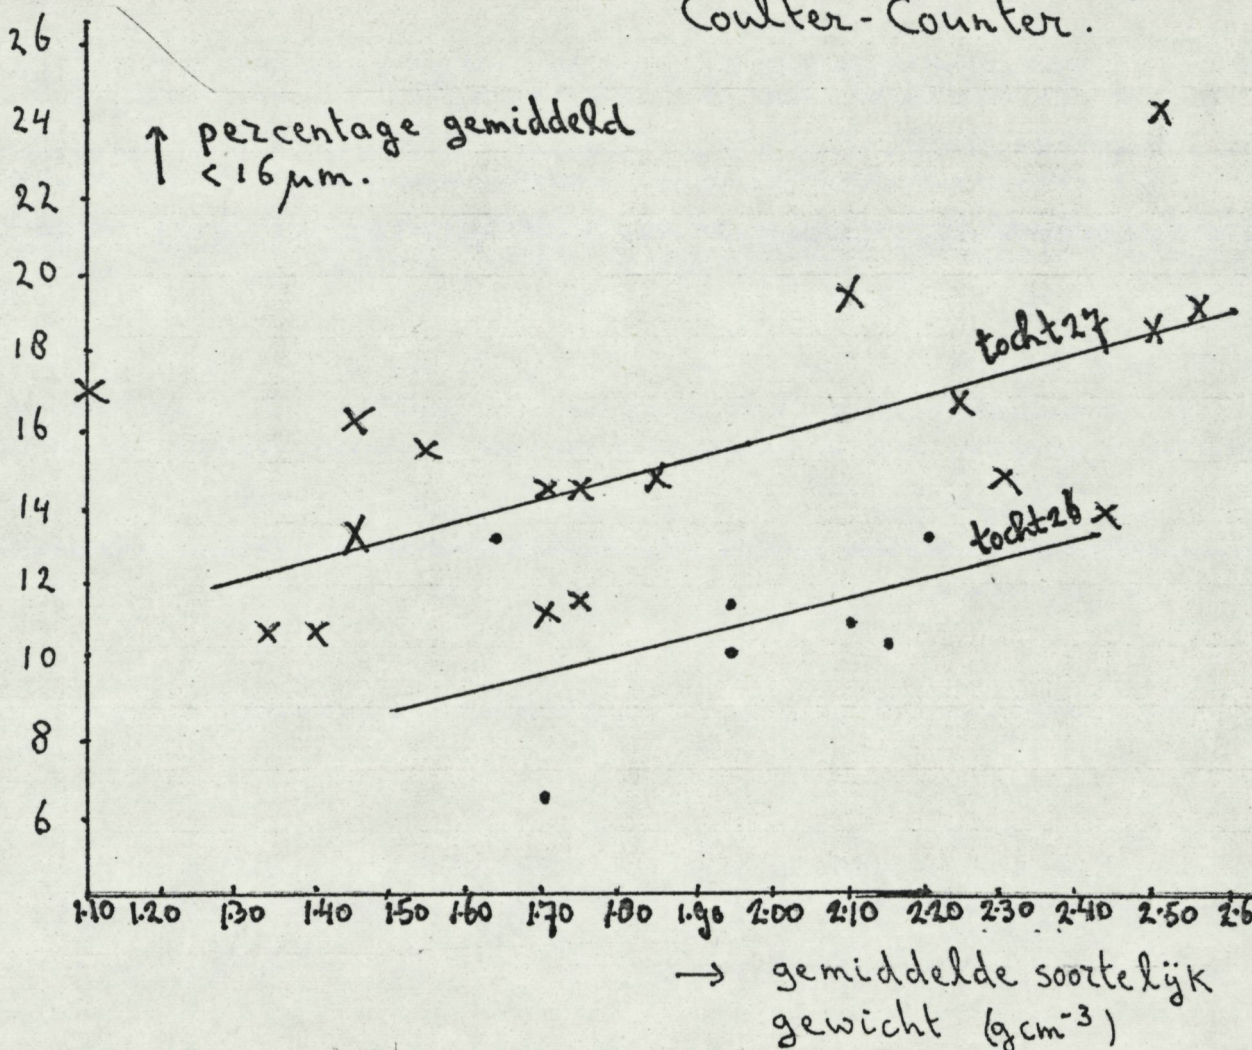 Coulter-Counter.
26
24
22
20
18
16
14
12
10
8
6
↑ percentage gemiddeld
< 16 μm.
tocht 27
tocht 28
1.10 1.20 1.30 1.40 1.50 1.60 1.70 1.80 1.90 2.00 2.10 2.20 2.30 2.40 2.50 2.6
→ gemiddelde soortelijk
gewicht (g cm⁻³)